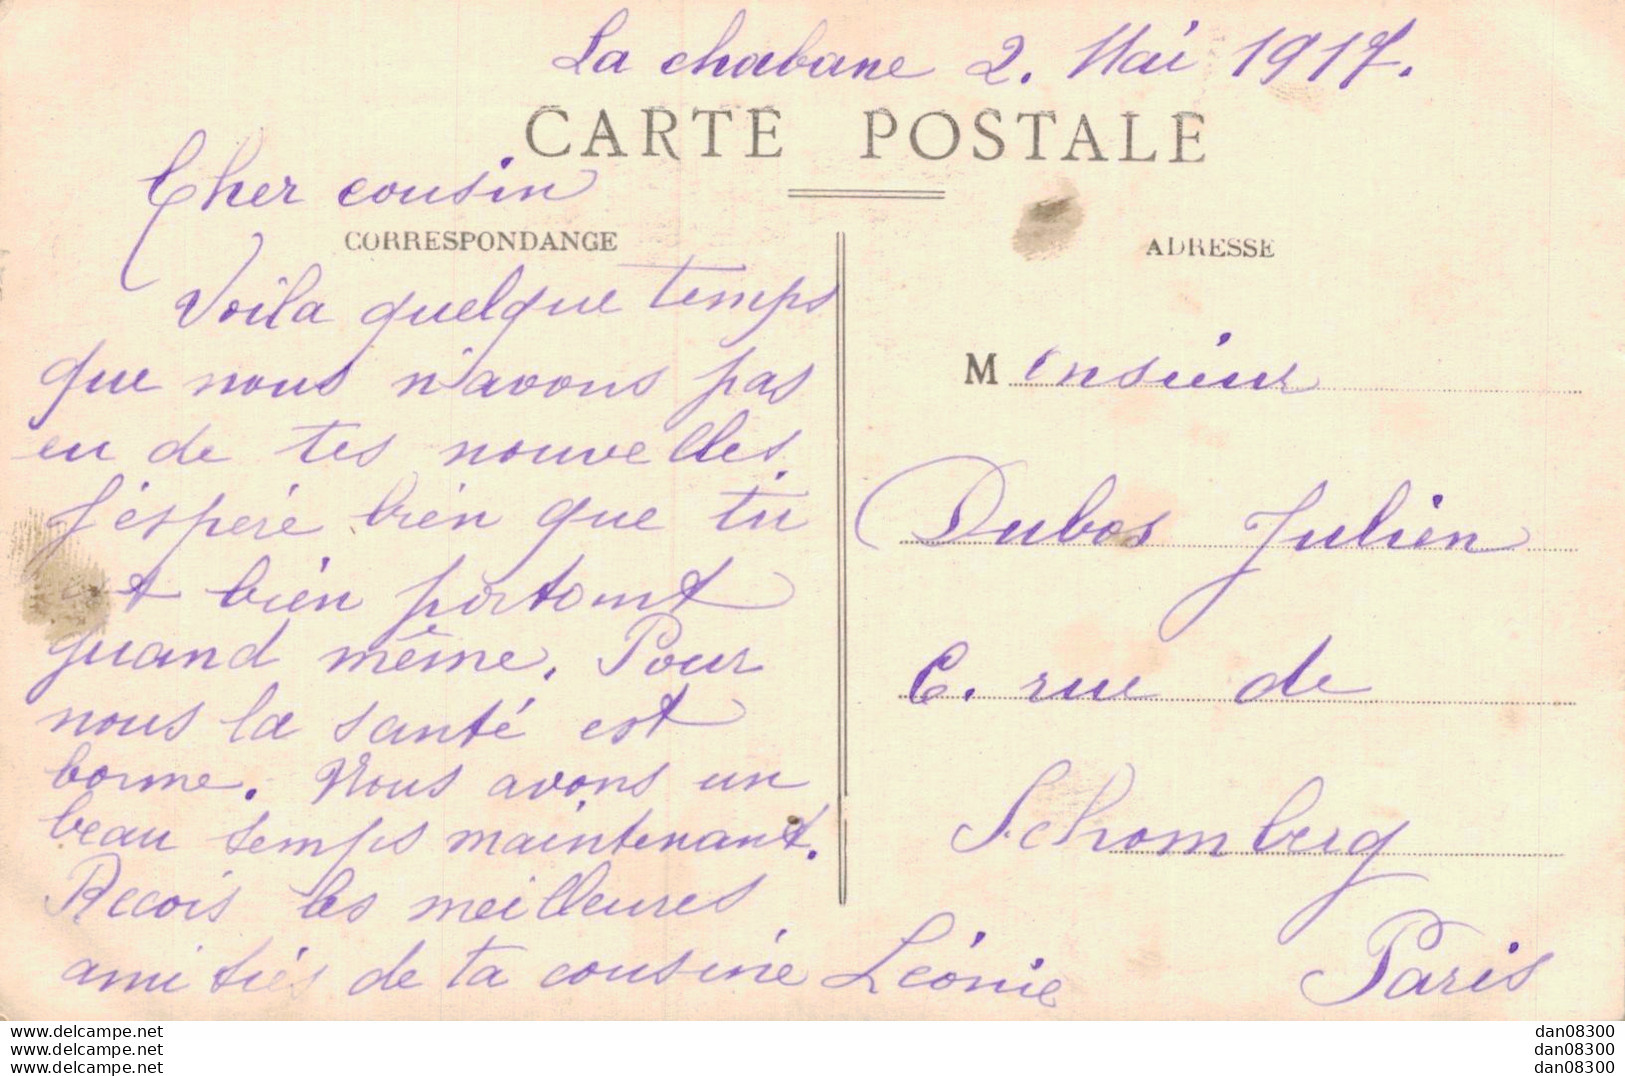 La chabane 2. Mai 1917.
CARTE POSTALE
Cher cousin
CORRESPONDANCE
Voila quelque temps
que nous n'avons pas
eu de tes nouvelles.
J'éspére bien que tu
est bien portant
quand même. Pour
nous la santé est
bonne. Nous avons un
beau temps maintenant.
Recois les meilleures
amitiés de ta cousine Léonie
ADRESSE
Monsieur
Dubos Julien
6. rue de
Schomberg
Paris
www.delcampe.net
www.delcampe.net
www.delcampe.net
dan08300
dan08300
dan08300